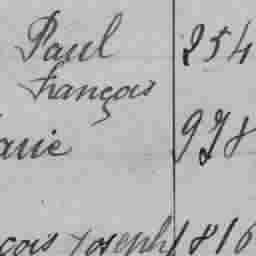 Paul 254
françois
arie 928
çois Joseph 816